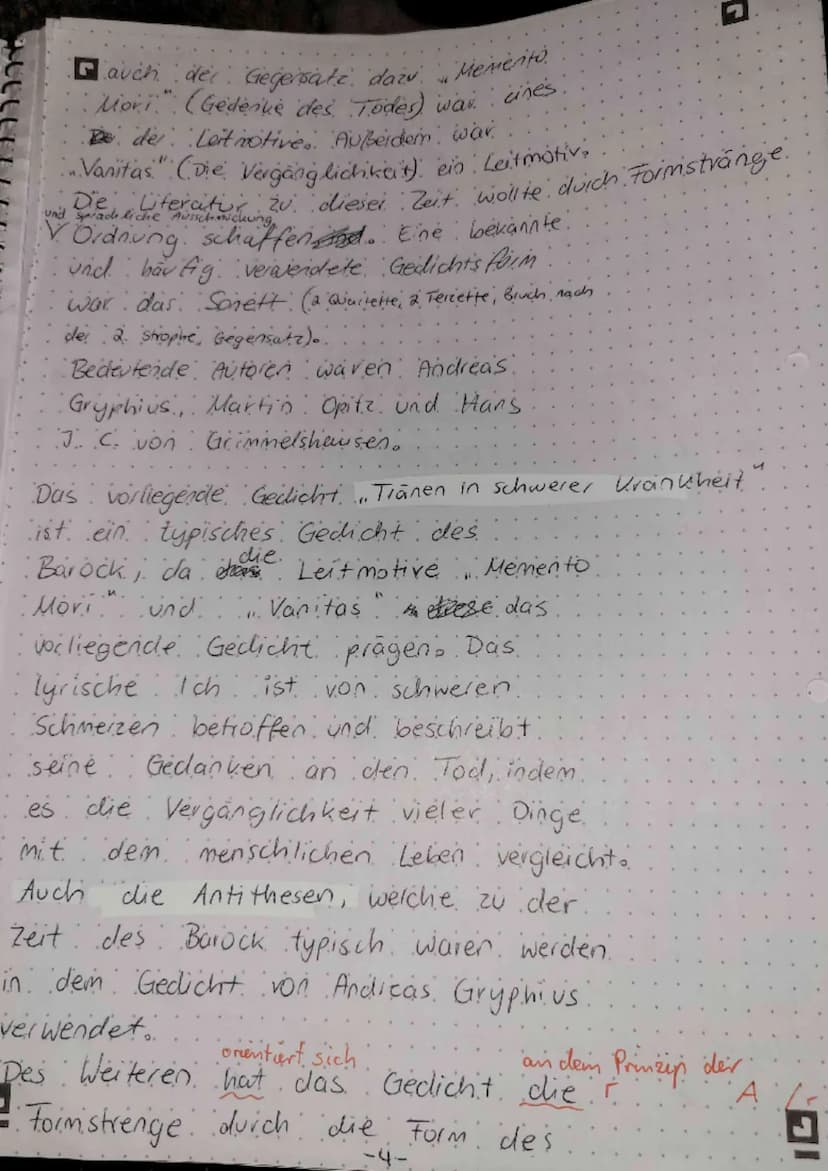 auch der Gegensatz dazu „Memento
Mori" (Gedenke des Todes) war eines
der Leitmotive. Außerdem war
„Vanitas" (Die Vergänglichkeit) ein Leitmotiv.
Die Literatur zu dieser Zeit wollte durch Formstränge
und sprachliche Ausschmückung
V Ordnung schaffen. Eine bekannte
und häufig verwendete Gedichtsform
war das Sonett (2 Quartette, 2 Terzette, Bruch nach
der 2. Strophe, Gegensatz).
Bedeutende Autoren waren Andreas
Gryphius, Martin Opitz und Hans
J. C. von Grimmelshausen.
Das vorliegende Gedicht „Tränen in schwerer Krankheit"
ist ein typisches Gedicht des
Barock, da die Leitmotive „Memento
Mori" und „Vanitas" das
vorliegende Gedicht prägen. Das
lyrische Ich ist von schweren
Schmerzen betroffen und beschreibt
seine Gedanken an den Tod, indem
es die Vergänglichkeit vieler Dinge
mit dem menschlichen Leben vergleicht.
Auch die Antithesen, welche zu der
Zeit des Barock typisch waren werden
in dem Gedicht von Andreas Gryphius
verwendet.
orientiert sich an dem Prinzip der
Des Weiteren hat das Gedicht die r A
Formstrenge durch die Form des
-4-